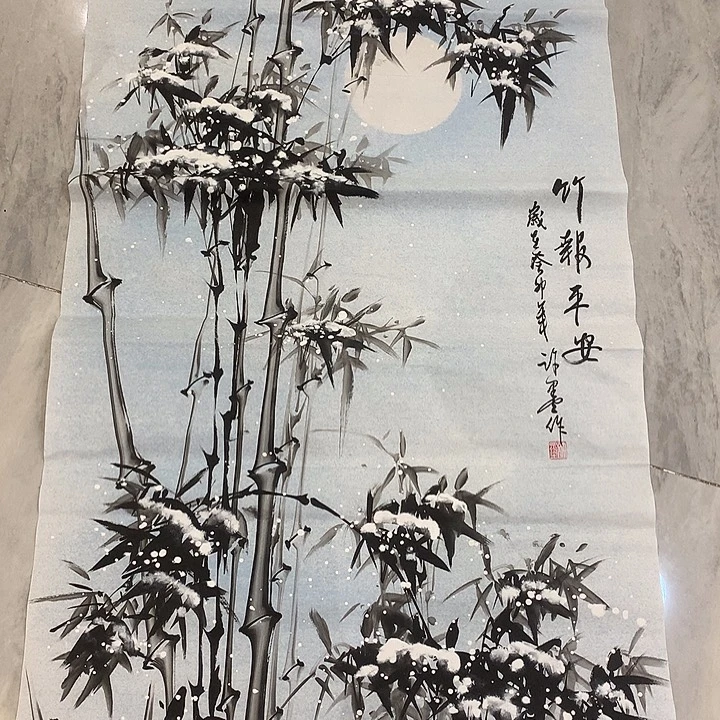 竹報平安
歲在癸卯年 許墨作